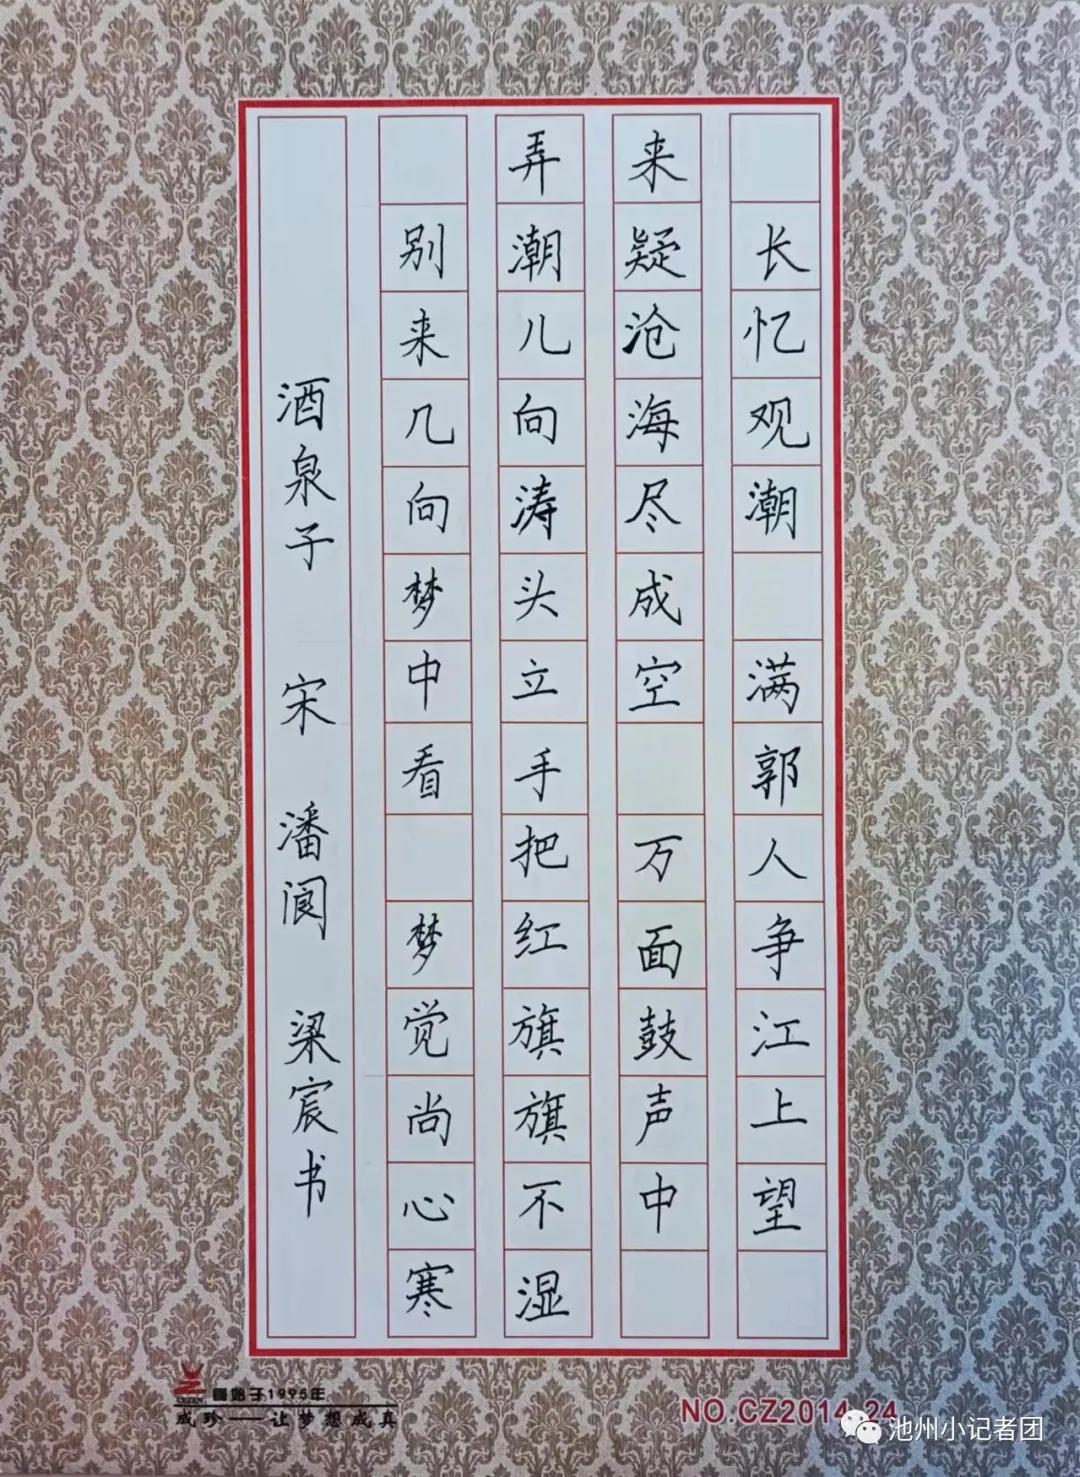 长忆观潮 满郭人争江上望
来疑沧海尽成空 万面鼓声中
弄潮儿向涛头立手把红旗旗不湿
别来几向梦中看 梦觉尚心寒
酒泉子 宋 潘阆 梁宸书
始于1995年
成珍——让梦想成真
NO.CZ2014-24
池州小记者团